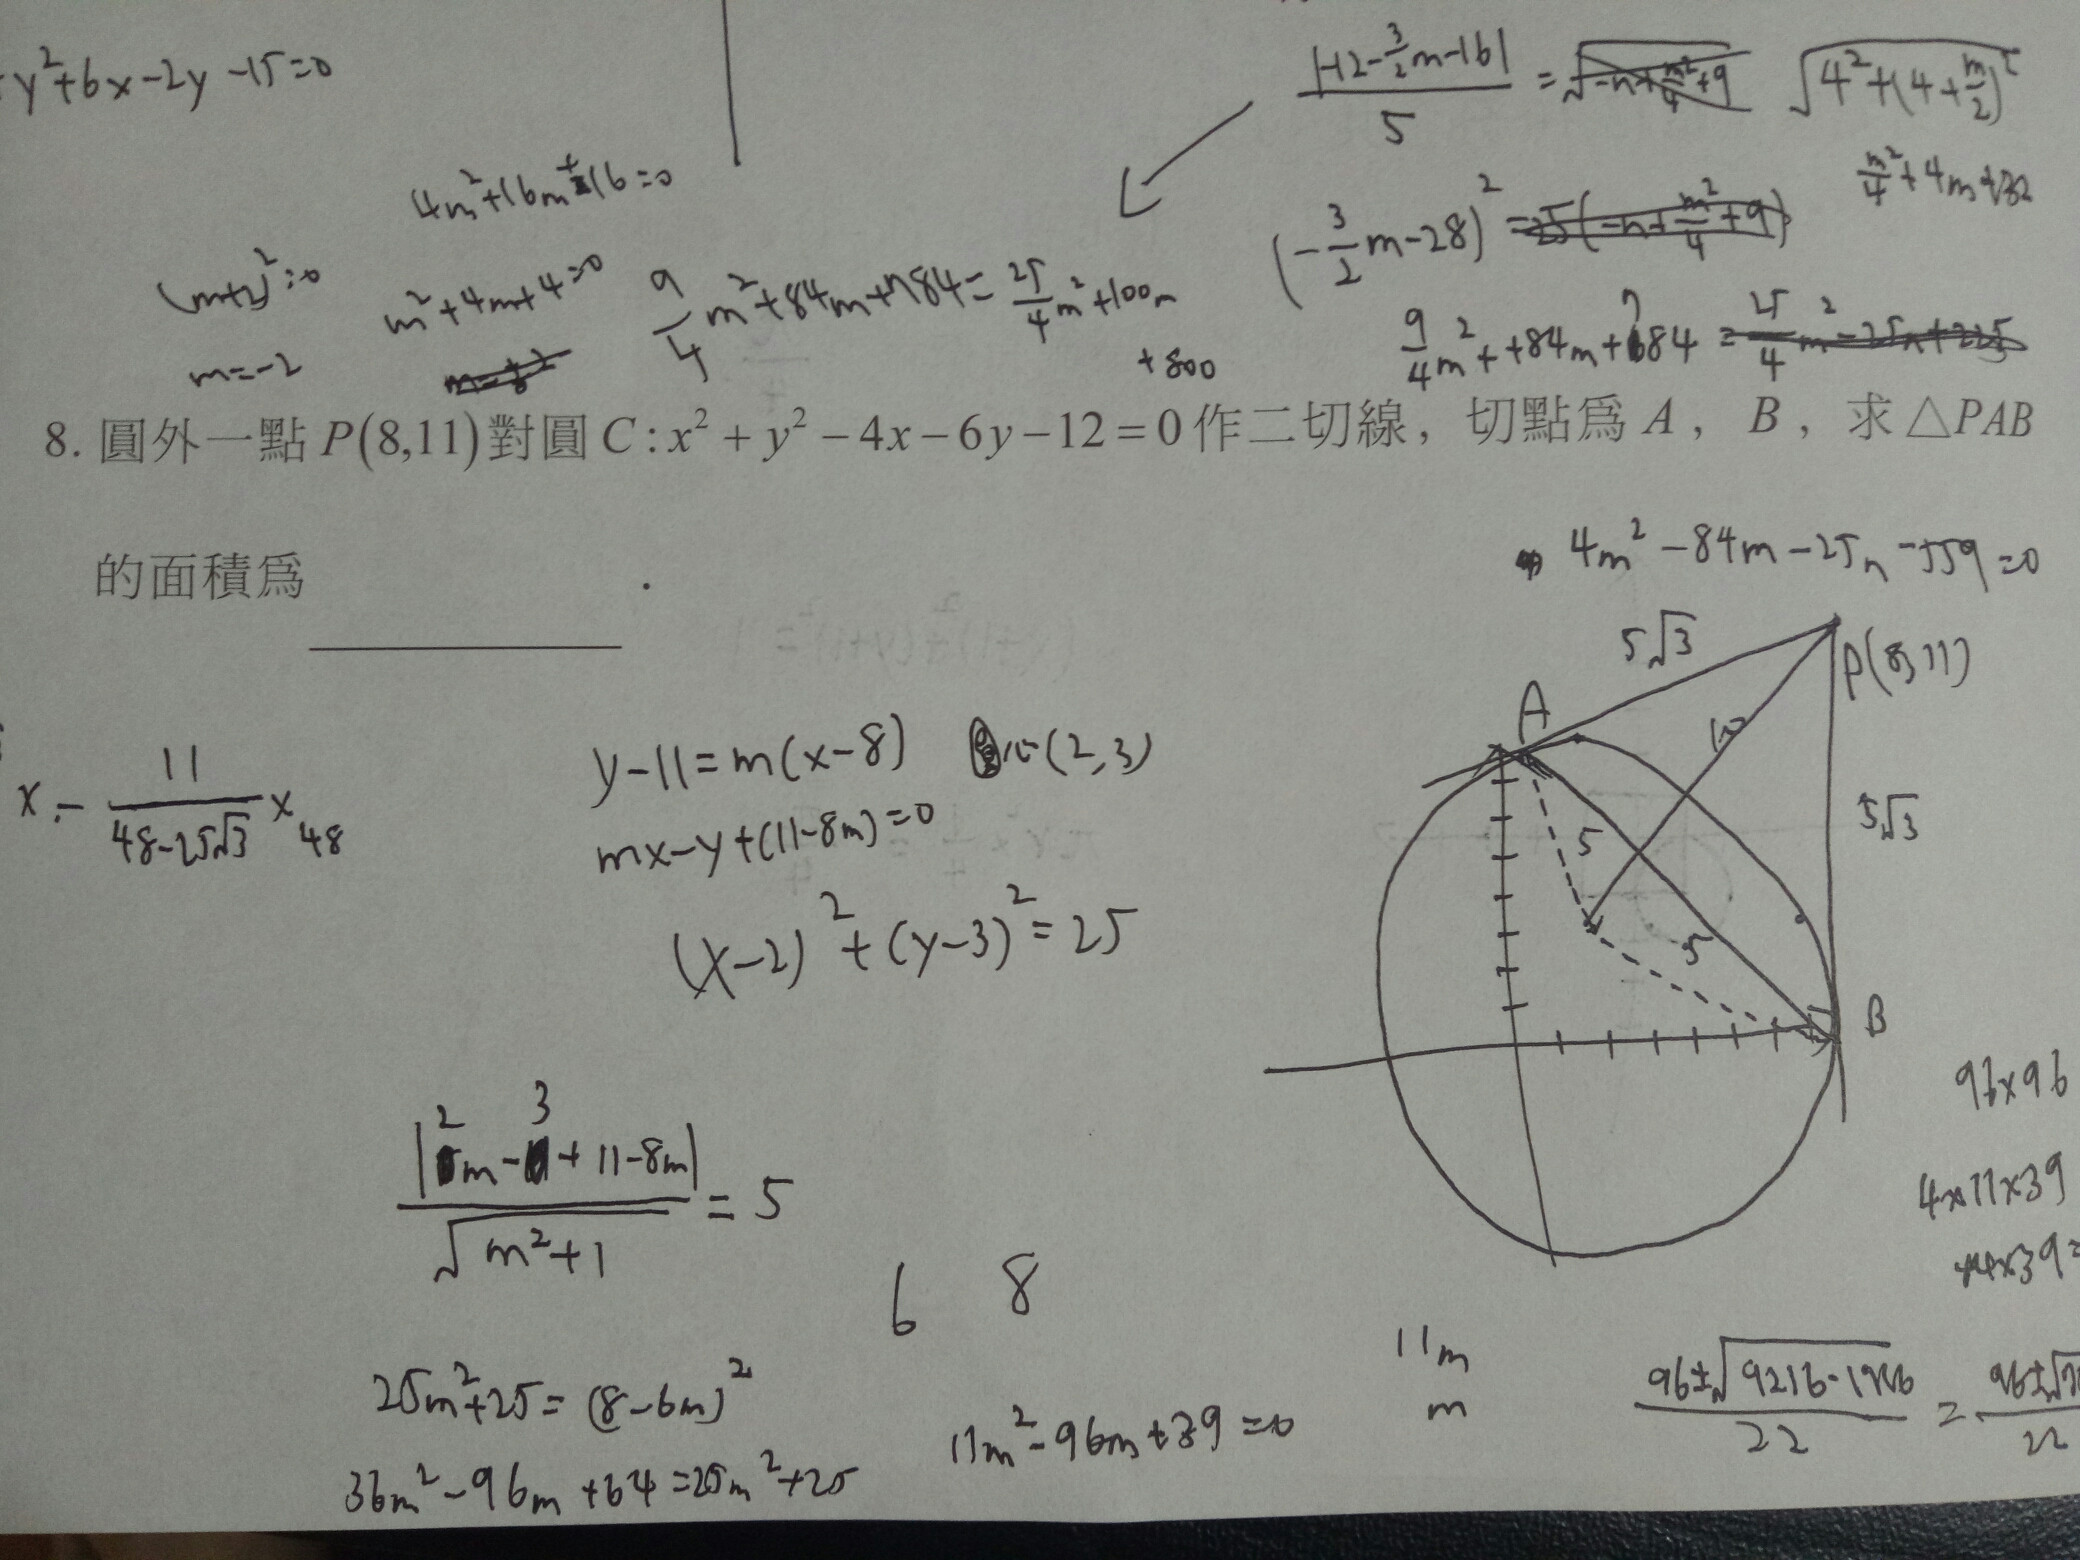 y²+6x-2y-15=0
|-12-3/2m-16| / 5 = √(-n+m²/4+9) √(4²+(4+m/2)²)
4m²+16m+16=0
m²/4+4m+32
(-3/2m-28)² =25(-n+m²/4+9)
(m+2)²=0
m²+4m+4=0
9/4m²+84m+784=25/4m²+100m
+800
9/4m²++84m+784=25/4m²-25n+225
m=-2
8. 圓外一點P(8,11)對圓C:x²+y²-4x-6y-12=0作二切線，切點爲A，B，求△PAB
的面積爲 ________ .
4m²-84m-25n-559=0
5√3
P(8,11)
A
10
x - 11/(48-25√3) x 48
y-11=m(x-8)
心(2,3)
mx-y+(11-8m)=0
5√3
5
(x-2)²+(y-3)²=25
5
B
96×96
|2m-3+11-8m| / √(m²+1) = 5
4×11×39
6 8
11m
m
25m²+25=(8-6m)²
36m²-96m+64=25m²+25
11m²-96m+39=0